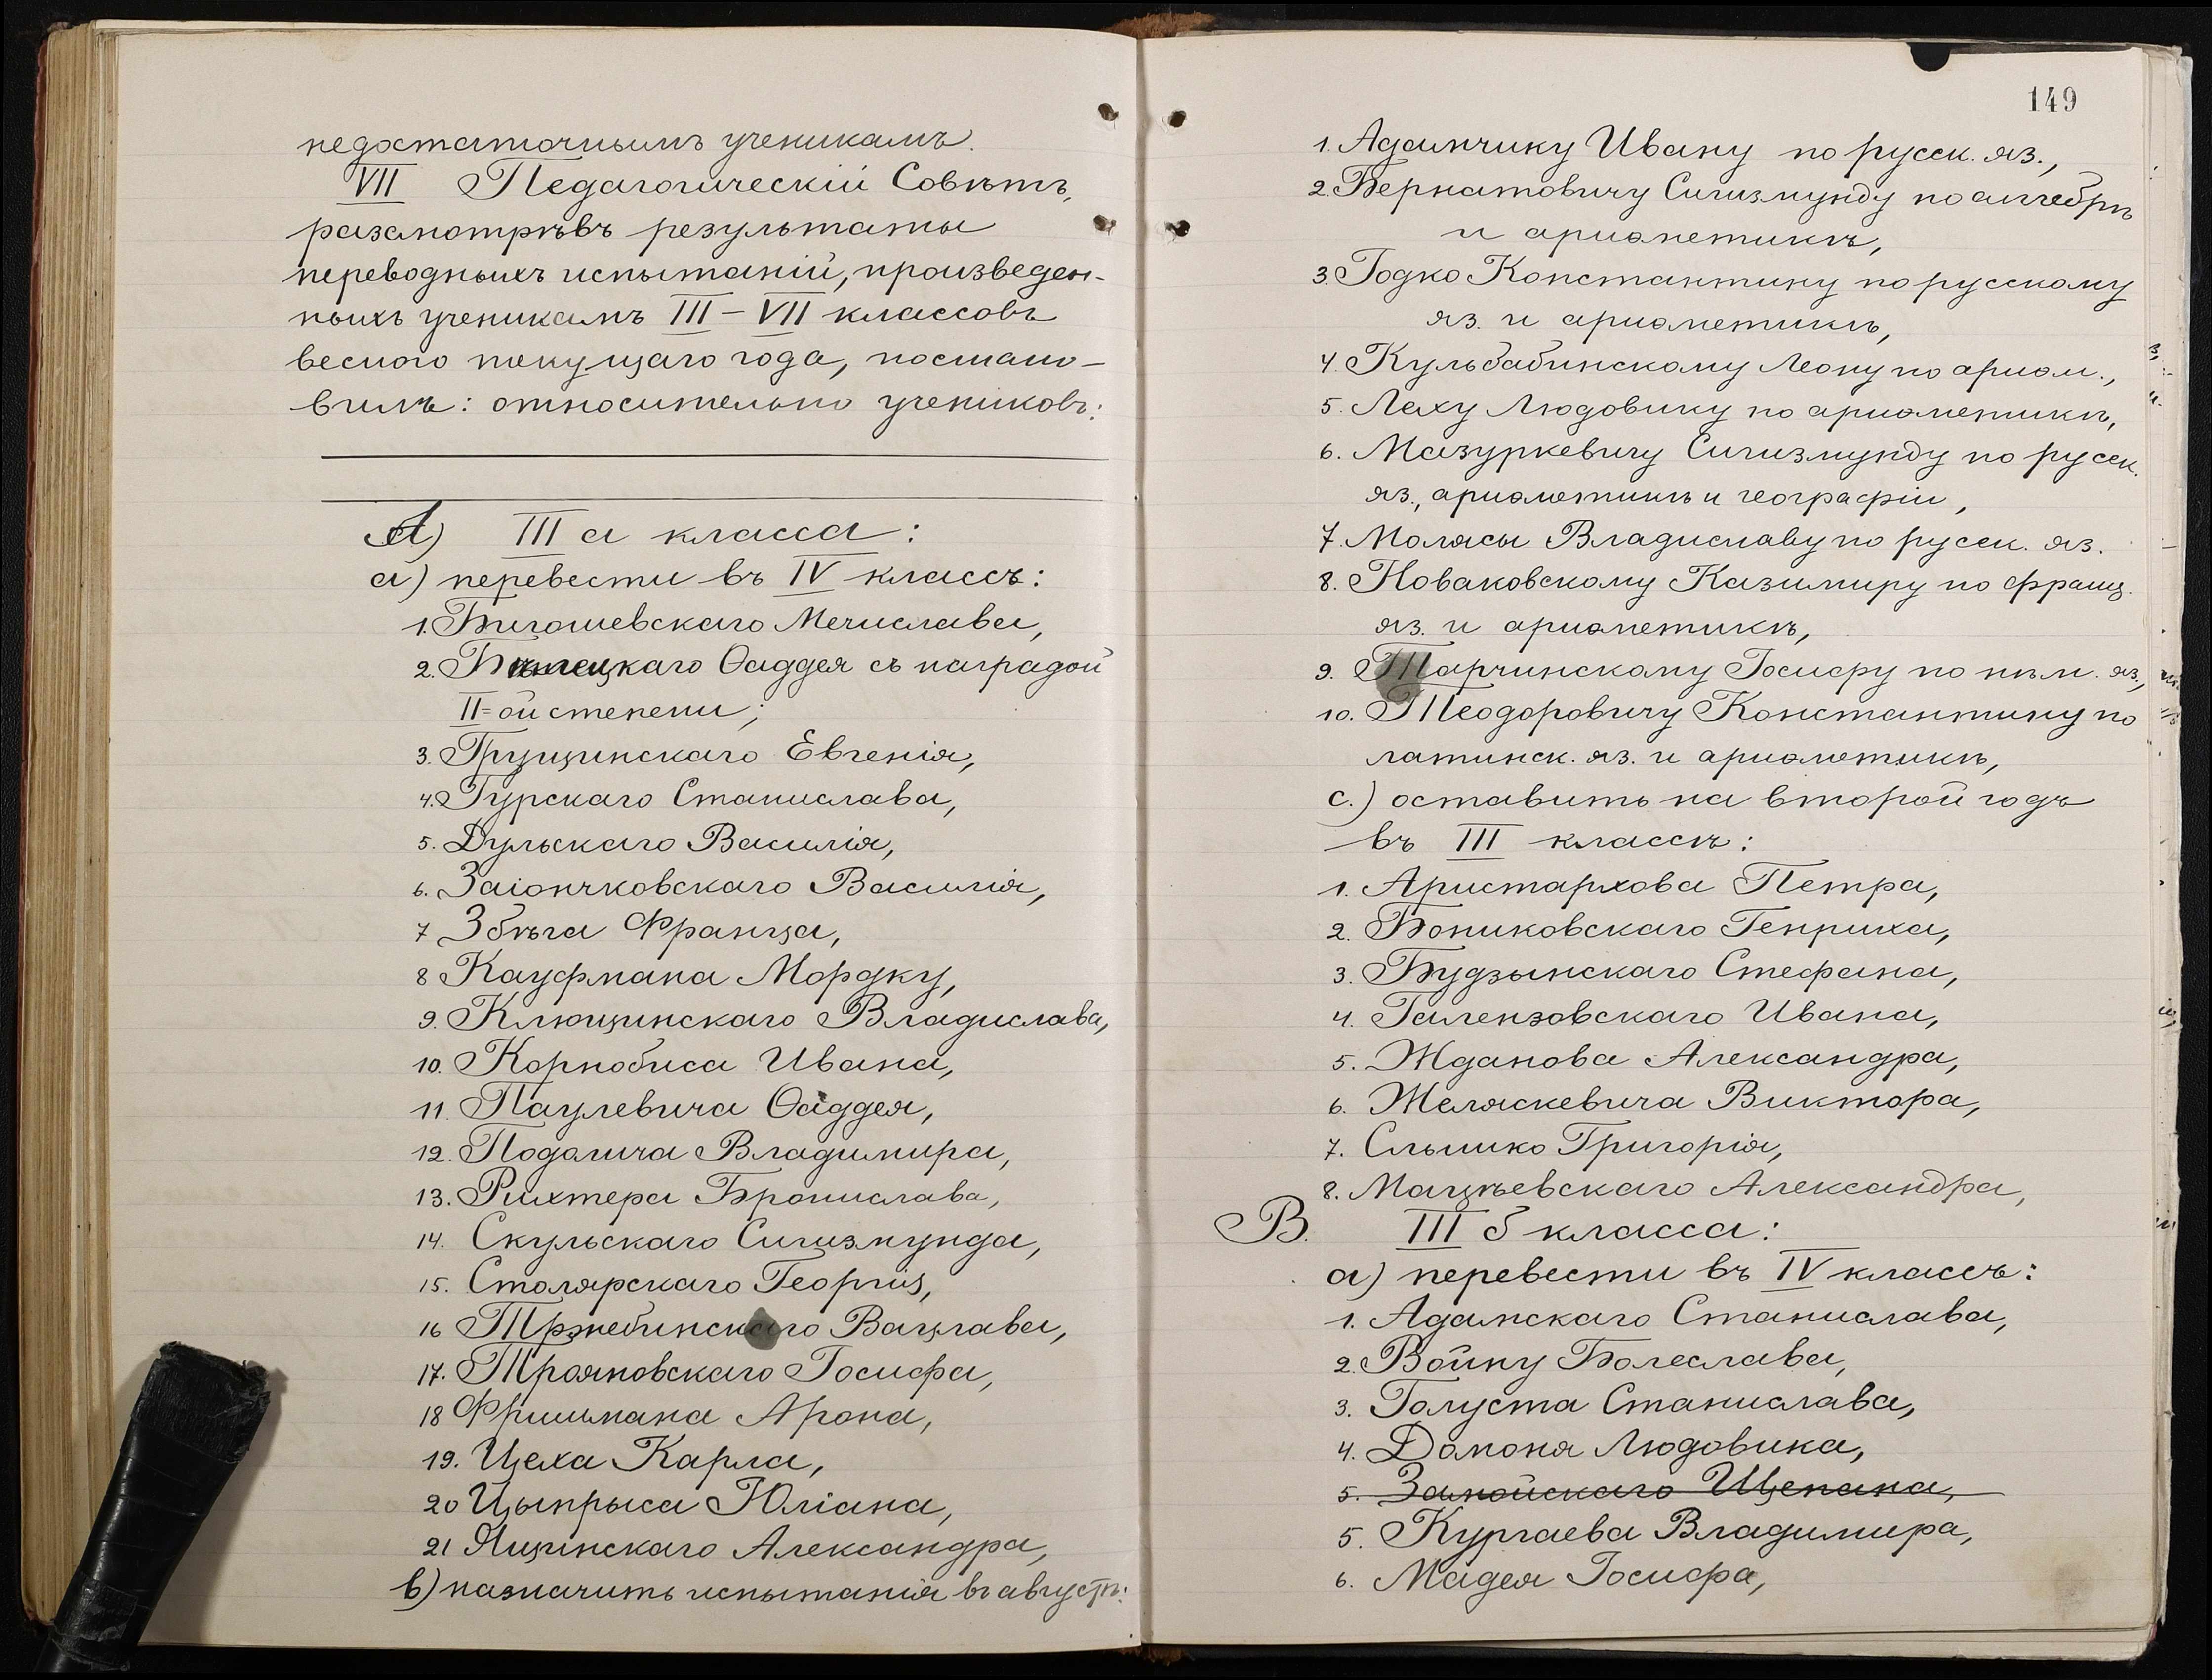 недостаточнымъ ученикамъ.
VII Педагогическій Совѣтъ,
разсмотрѣвъ результаты
переводныхъ испытаній, произведен-
ныхъ ученикамъ III – VII классовъ
весною текущаго года, постано-
вилъ: относительно учениковъ:
А) III а класса:
а) перевести въ IV классъ:
1. Бигошевскаго Мечислава,
2. Бѣлецкаго Ѳаддея съ наградой
II=ой степени;
3. Грущинскаго Евгенія,
4. Гурскаго Станислава,
5. Дульскаго Василія,
6. Заіончковскаго Василія,
7 Збѣга Франца,
8 Кауфмана Мордку,
9. Клющинскаго Владислава,
10. Корнобиса Ивана,
11. Паулевича Ѳаддея,
12. Подолича Владимира,
13. Рихтера Бронислава,
14. Скульскаго Сигизмунда,
15. Столярскаго Георгія,
16 Тржебинскаго Вацлава,
17. Трояновскаго Іосифа,
18 Фришмана Арона,
19. Цеха Карла,
20 Цыпрыса Юліана,
21 Яцинскаго Александра,
в) назначить испытанія въ августѣ:
149
1. Адамчику Ивану по русск. яз.,
2. Бернатовичу Сигизмунду по алгебрѣ
и ариѳметикѣ,
3. Годко Константину по русскому
яз. и ариѳметикѣ,
4. Кульбабинскому Леону по ариѳм.,
5. Леху Людовику по ариѳметикѣ,
6. Мазуркевичу Сигизмунду по русск.
яз., ариѳметикѣ и географіи,
7. Молясы Владиславу по русск. яз.
8. Новаковскому Казимиру по франц.
яз. и ариѳметикѣ,
9. Тарчинскому Іосифу по нѣм. яз.,
10. Теодоровичу Константину по
латинск. яз. и ариѳметикѣ,
с.) оставить на второй годъ
въ III классѣ:
1. Аристархова Петра,
2. Бониковскаго Генриха,
3. Будзынскаго Стефана,
4. Галензовскаго Ивана,
5. Жданова Александра,
6. Желяскевича Виктора,
7. Слышко Григорія,
8. Мацѣевскаго Александра,
В. III б класса:
а) перевести въ IV классъ:
1. Адамскаго Станислава,
2. Войну Болеслава,
3. Голуста Станислава,
4. Домоня Людовика,
5. Замойскаго Щепана,
5. Кургаева Владимира,
6. Мадея Іосифа,